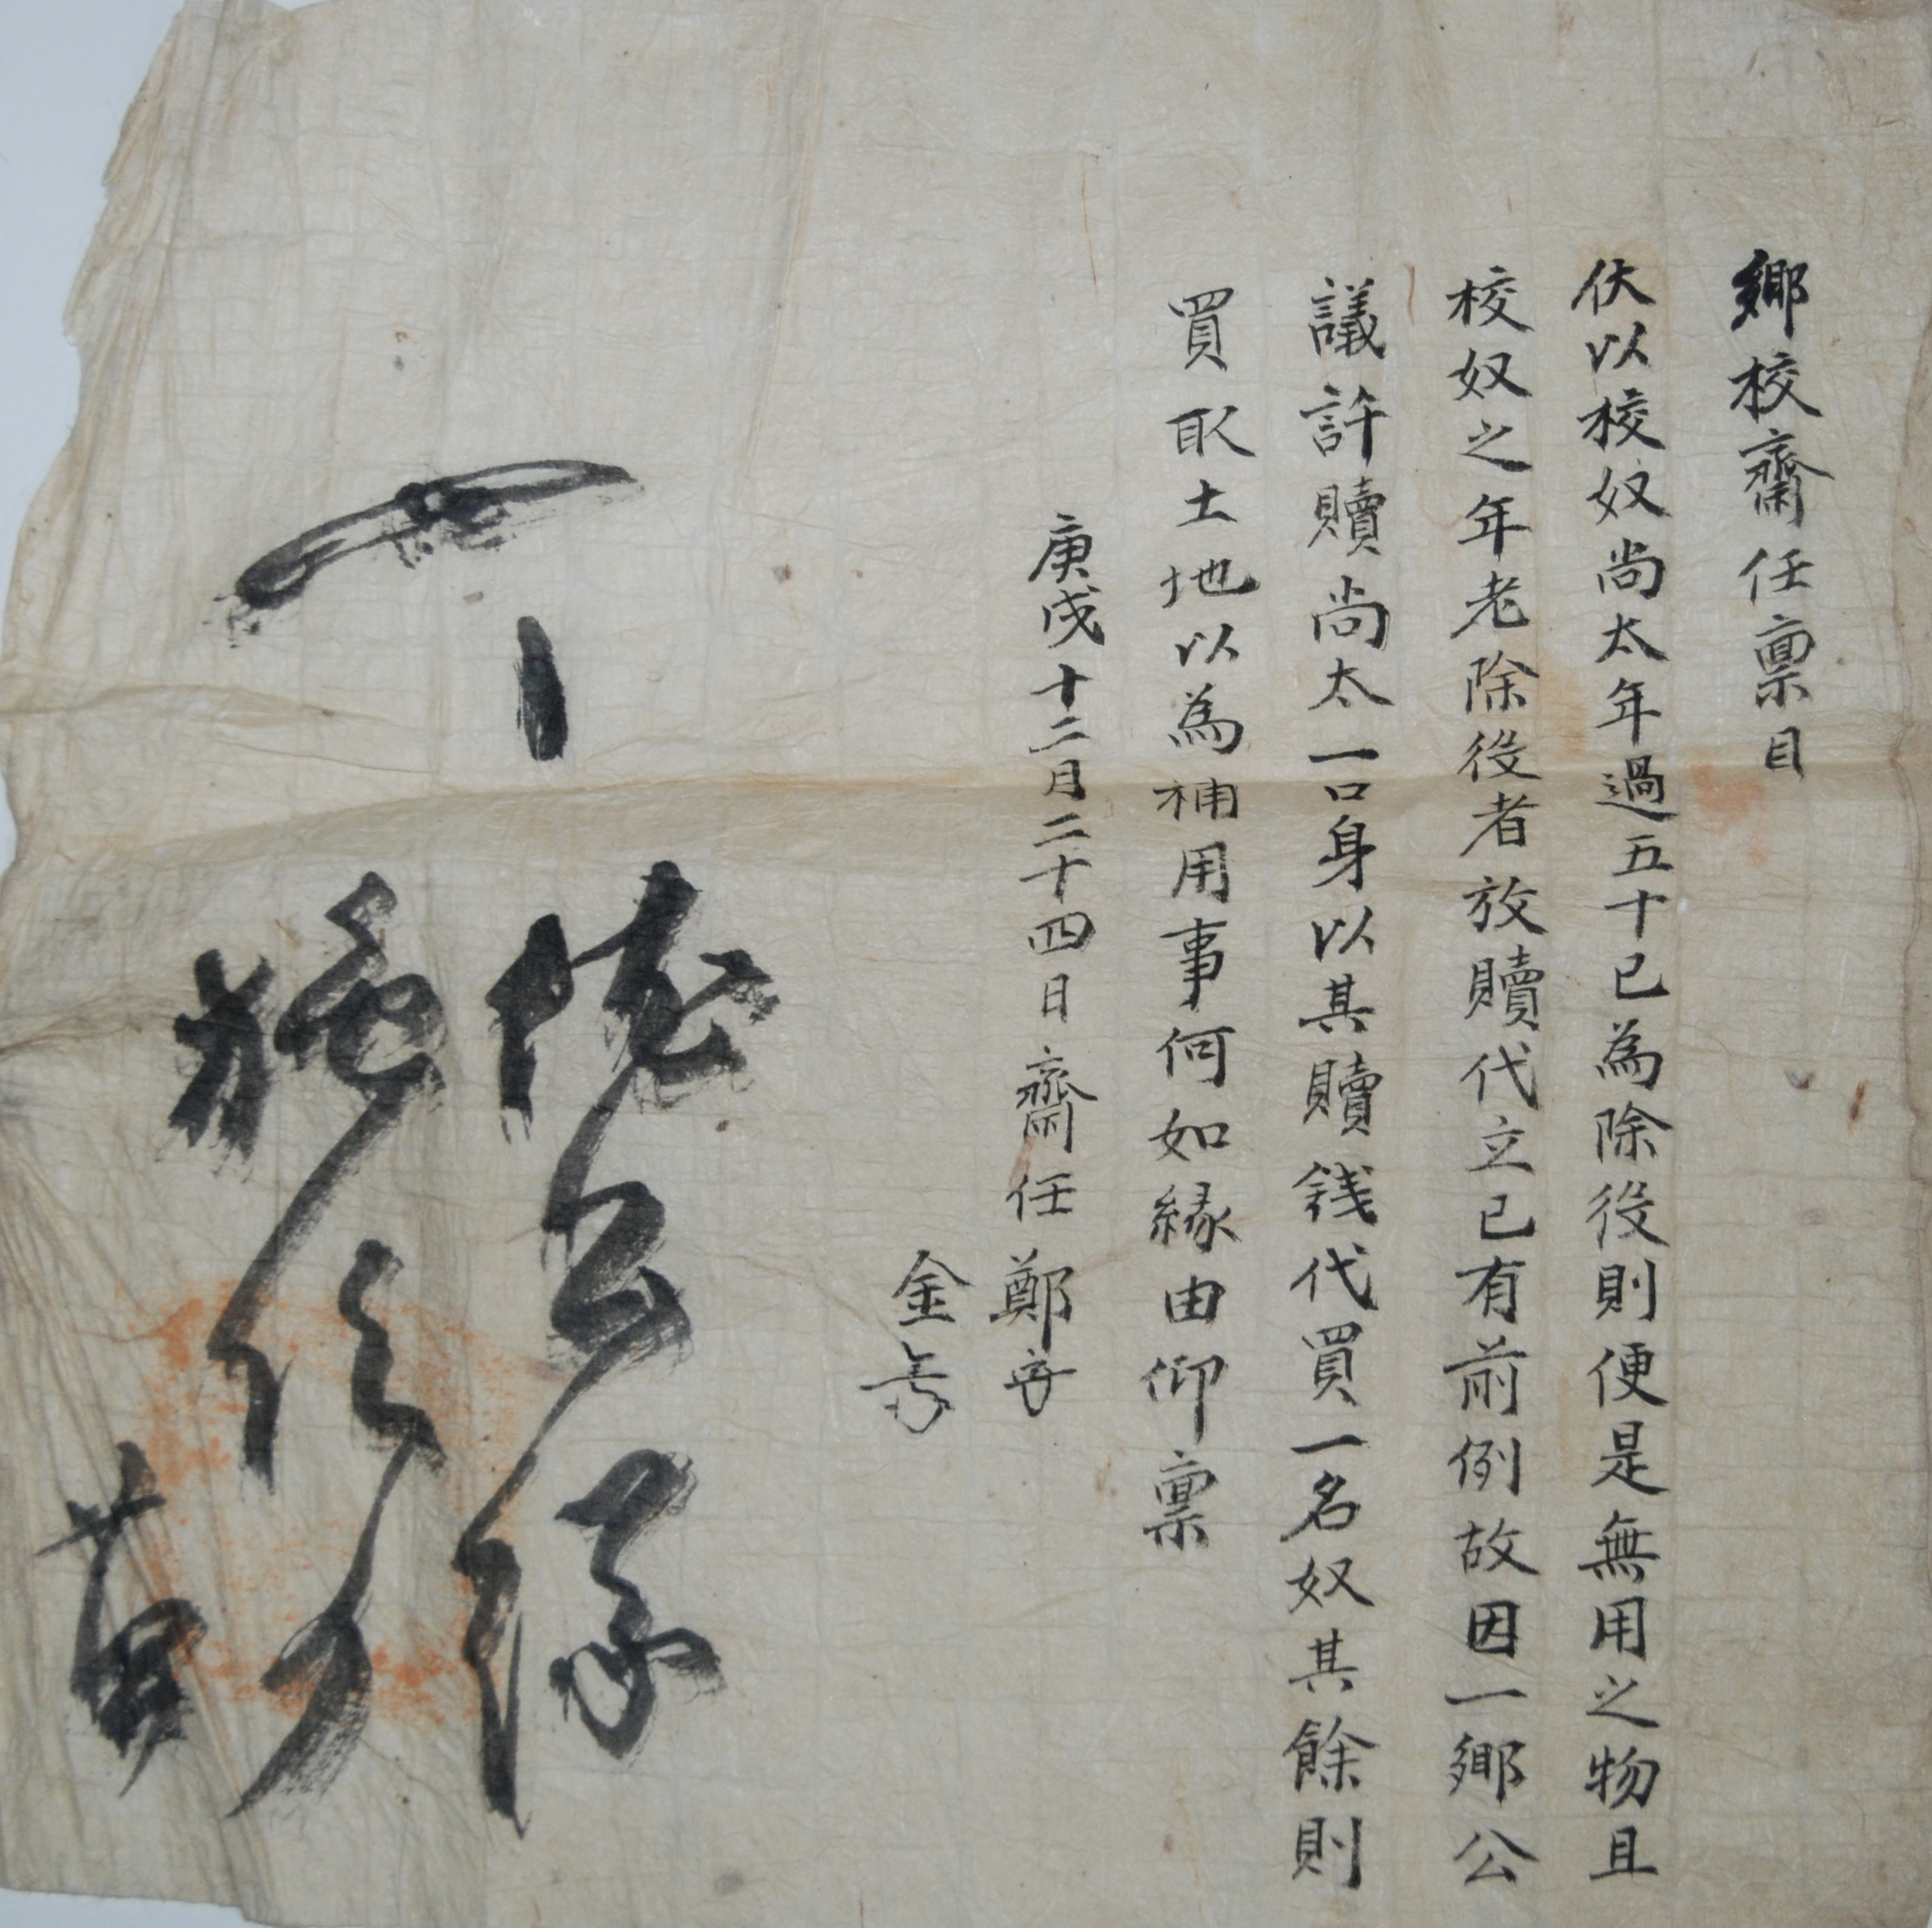 鄕校齋任稟目
伏以校奴尙太年過五十已為除役則便是無用之物且
校奴之年老除役者放贖代立已有前例故因一鄕公
議許贖尙太一口身以其贖錢代買一名奴其餘則
買取土地以為補用事何如緣由仰稟
庚戌十二月二十四日齋任鄭
金
依公議
施行向